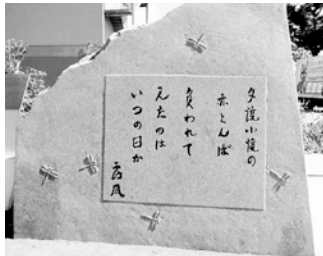 夕焼小焼の
赤とんぼ
負われて
見たのは
いつの日か
露風